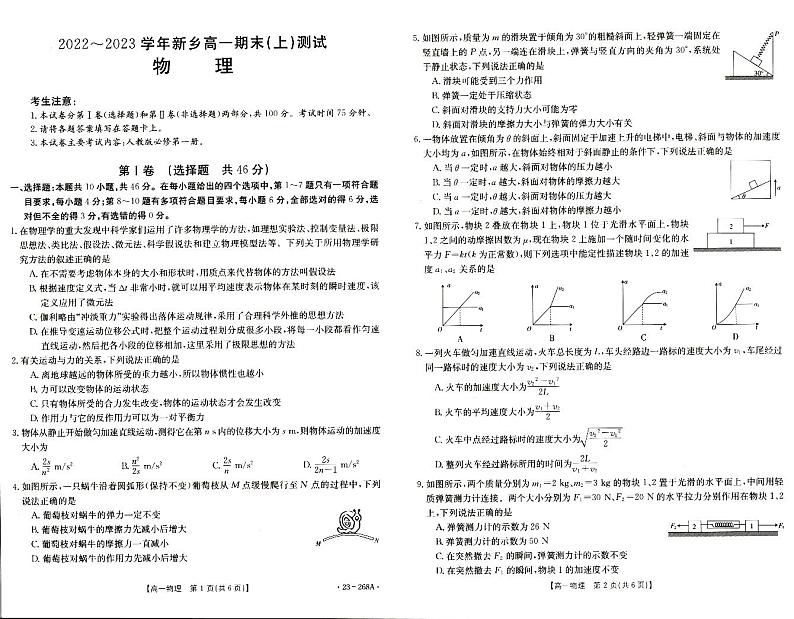 2022～2023学年新乡高一期末(上)测试
物 理
考生注意:
1.本试卷分第Ⅰ卷(选择题)和第Ⅱ卷(非选择题)两部分,共100分。考试时间75分钟。
2.请将各题答案填写在答题卡上。
3.本试卷主要考试内容:人教版必修第一册。
第Ⅰ卷 (选择题 共46分)
一、选择题:本题共10小题,共46分。在每小题给出的四个选项中,第1~7题只有一项符合题
目要求,每小题4分;第8~10题有多项符合题目要求,每小题6分,全部选对的得6分,选
对但不全的得3分,有选错的得0分。
1.在物理学的重大发现中科学家们运用了许多物理学的方法,如理想实验法、控制变量法、极限
思想法、类比法、假设法、微元法、科学假说法和建立物理模型法等。下列关于所用物理学研
究方法的叙述正确的是
A.在不需要考虑物体本身的大小和形状时,用质点来代替物体的方法叫假设法
B.根据速度定义式,当Δt非常小时,就可以用平均速度表示物体在某时刻的瞬时速度,该
定义应用了微元法
C.伽利略由“冲淡重力”实验得出落体运动规律,采用了合理科学外推的思想方法
D.在推导变速运动位移公式时,把整个运动过程划分成很多小段,将每一小段都看作匀速
直线运动,然后把各小段的位移相加,这里采用了极限思想的方法
2.有关运动与力的关系,下列说法正确的是
A.离地球越远的物体所受的重力越小,所以物体惯性也越小
B.力可以改变物体的运动状态
C.只有物体所受的合力发生改变,物体的运动状态才会发生改变
D.作用力与它的反作用力可以为一对平衡力
3.物体从静止开始做匀加速直线运动,测得它在第n s内的位移大小为s m,则物体运动的加速度
大小为
A.2s/n² m/s² B.n²/2s m/s² C.2s/n m/s² D.2s/2n−1 m/s²
4.如图所示,一只蜗牛沿着圆弧形(保持不变)葡萄枝从M点缓慢爬行至N点的过程中,下列
说法正确的是
A.葡萄枝对蜗牛的弹力一定不变
B.葡萄枝对蜗牛的摩擦力先减小后增大
C.葡萄枝对蜗牛的摩擦力一直减小
D.葡萄枝对蜗牛的作用力先减小后增大
M N
【高一物理 第1页(共6页)】 ·23-268A·
5.如图所示,质量为m的滑块置于倾角为30°的粗糙斜面上,轻弹簧一端固定在
竖直墙上的P点,另一端连在滑块上,弹簧与竖直方向的夹角为30°,系统处
于静止状态,下列说法正确的是
A.滑块可能受到三个力作用
B.弹簧一定处于压缩状态
C.斜面对滑块的支持力大小可能为零
D.斜面对滑块的摩擦力大小与弹簧的弹力大小有关
P
30°
6.一物体放置在倾角为θ的斜面上,斜面固定于加速上升的电梯中,电梯、斜面与物体的加速度
大小均为a,如图所示,在物体始终相对于斜面静止的条件下,下列说法正确的是
A.当θ一定时,a越大,斜面对物体的压力越小
B.当θ一定时,a越大,斜面对物体的摩擦力越大
C.当a一定时,θ越大,斜面对物体的压力越大
D.当a一定时,θ越大,斜面对物体的摩擦力越小
a
θ
7.如图所示,物块2叠放在物块1上,物块1位于光滑水平面上,物块
1、2之间的动摩擦因数为μ,现在物块2上施加一个随时间变化的水
平力F=kt(k为正常数),则下列选项中能定性描述物块1、2的加速
度a₁、a₂关系的是
2 F
1
a a₂ a₁ O t A
a a₂ a₁ O t B
a a₂ a₁ O t C
a a₂ a₁ O t D
8.一列火车做匀加速直线运动,火车总长度为L,车头经路边一路标的速度大小为v₁,车尾经过
同一路标时的速度大小为v₂,下列说法正确的是
A.火车的加速度大小为v₂²−v₁²/2L
B.火车的平均速度大小为v₁+v₂/2
C.火车中点经过路标时的速度大小为√v₂²−v₁²/2
D.整列火车经过路标所用的时间为2L/v₁+v₂
9.如图所示,两个质量分别为m₁=2 kg、m₂=3 kg的物块1、2置于光滑的水平面上,中间用轻
质弹簧测力计连接。两个大小分别为F₁=30 N、F₂=20 N的水平拉力分别作用在物块1、2
上,下列说法正确的是
A.弹簧测力计的示数为26 N
B.弹簧测力计的示数为50 N
C.在突然撤去F₂的瞬间,弹簧测力计的示数不变
D.在突然撤去F₁的瞬间,物块1的加速度不变
F₂ 2 1 F₁
【高一物理 第2页(共6页)】